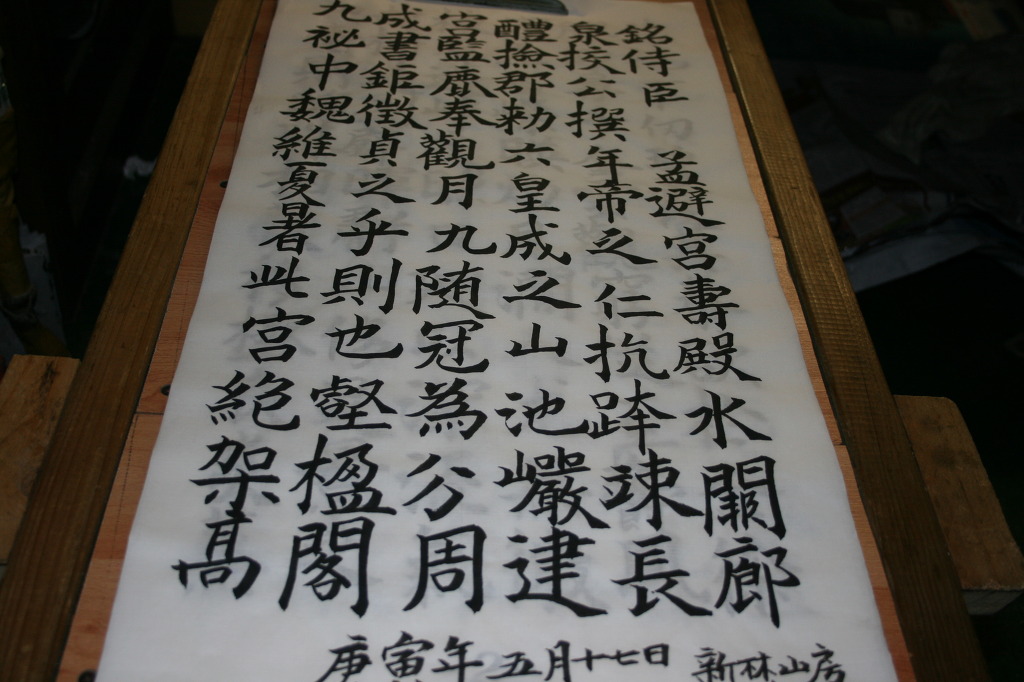 九成宮醴泉銘
祕書監撿挍侍
中鉅鹿郡公臣
魏徵奉勅撰
維貞觀六年孟
夏之月皇帝避
暑乎九成之宮
此則随之仁壽
宮也冠山抗殿
絶壑為池跨水
架楹分巖竦闕
高閣周建長廊
庚寅年 五月十七日 新林山房